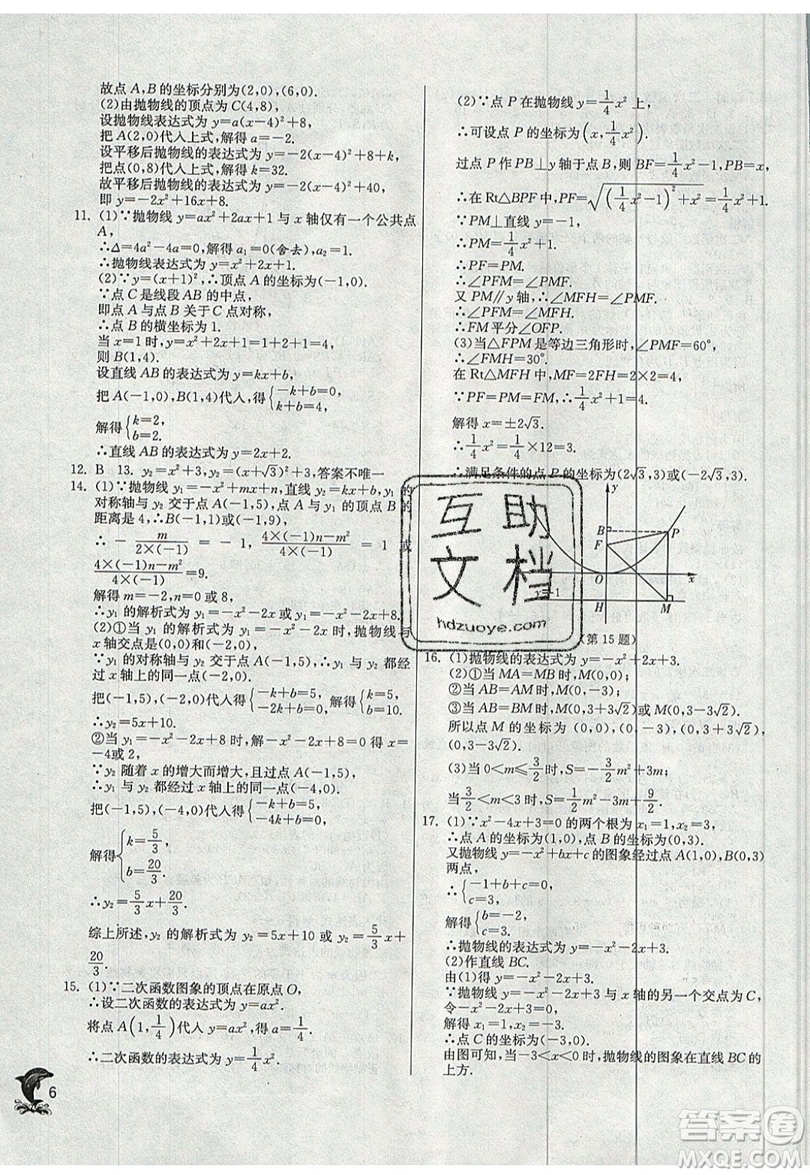 故点 A,B 的坐标分别为(2,0),(6,0).
(2)由抛物线的顶点为 C(4,8),
设抛物线表达式为 y=a(x-4)²+8,
把 A(2,0)代入上式,解得 a=-2.
设平移后抛物线的表达式为 y=-2(x-4)²+8+k,
把点(0,8)代入上式,解得 k=32.
故平移后抛物线的表达式为 y=-2(x-4)²+40,
即 y=-2x²+16x+8.
11. (1)∵抛物线 y=ax²+2ax+1 与 x 轴仅有一个公共点
A,
∴Δ=4a²-4a=0,解得 a₁=0(舍去),a₂=1.
∴抛物线表达式为 y=x²+2x+1.
(2)∵y=(x+1)²,∴顶点 A 的坐标为(-1,0).
∵点 C 是线段 AB 的中点,
即点 A 与点 B 关于 C 点对称,
∴点 B 的横坐标为 1.
当 x=1 时,y=x²+2x+1=1+2+1=4,
则 B(1,4).
设直线 AB 的表达式为 y=kx+b,
把 A(-1,0),B(1,4)代入,得{-k+b=0, k+b=4,
解得{k=2, b=2.
∴直线 AB 的表达式为 y=2x+2.
12. B 13. y₂=x²+3,y₂=(x+√3)²,答案不唯一
14. (1)∵抛物线 y₁=-x²+mx+n,直线 y₂=kx+b,y₁ 的
对称轴与 y₂ 交于点 A(-1,5),点 A 与 y₁ 的顶点 B 的
距离是 4,
∴ -m/(2×(-1)) = -1, (4×(-1)n-m²)/(4×(-1)) = 1 或
(4×(-1)n-m²)/(4×(-1))=9.
解得 m=-2,n=0 或 8,
∴y₁ 的解析式为 y₁=-x²-2x 或 y₁=-x²-2x+8.
(2)①当 y₁ 的解析式为 y₁=-x²-2x 时,抛物线与
x 轴交点是(0,0)和(-2,0),
∵y₁ 的对称轴与 y₂ 交于点 A(-1,5),∴y₁ 与 y₂ 都经
过 x 轴上的同一点(-2,0),
把(-1,5),(-2,0)代入得{-k+b=5, -2k+b=0,解得{k=5, b=10.
∴y₂=5x+10.
②当 y₁=-x²-2x+8 时,解-x²-2x+8=0 得 x=
-4或 2,
∵y₂ 随着 x 的增大而增大,且过点 A(-1,5),
∴y₁ 与 y₂ 都经过 x 轴上的同一点(-4,0),
把(-1,5),(-4,0)代入得{-k+b=5, -4k+b=0,
解得{k=5/3, b=20/3.
∴y₂=5/3 x+20/3.
综上所述,y₂ 的解析式为 y₂=5x+10 或 y₂=5/3 x+
20/3.
15. (1)∵二次函数图象的顶点在原点 O,
∴设二次函数的表达式为 y=ax².
将点 A(1,1/4)代入 y=ax²,得 a=1/4.
∴二次函数的表达式为 y=1/4 x².
6
(2)∵点 P 在抛物线 y=1/4 x² 上,
∴可设点 P 的坐标为(x,1/4 x²).
过点 P 作 PB⊥y 轴于点 B,则 BF=1/4 x²-1,PB=x.
∴在 Rt△BPF 中,PF=√((1/4 x²-1)²+x²)=1/4 x²+1.
∵PM⊥直线 y=-1,
∴PM=1/4 x²+1.
∴PF=PM.
∴∠PFM=∠PMF.
又 PM∥y 轴,∴∠MFH=∠PMF.
∴∠PFM=∠MFH.
∴FM 平分∠OFP.
(3)当△FPM 是等边三角形时,∠PMF=60°,
∴∠FMH=30°.
在 Rt△MFH 中,MF=2FH=2×2=4,
∵PF=PM=FM,∴1/4 x²+1=4.
解得 x=±2√3.
∴1/4 x²=1/4×12=3.
∴满足条件的点 P 的坐标为(2√3,3)或(-2√3,3).
y
B P
F
O x
y=-1
H M
(第 15 题)
16. (1)抛物线的表达式为 y=-x²+2x+3.
(2)①当 MA=MB 时,M(0,0);
②当 AB=AM 时,M(0,-3);
③当 AB=BM 时,M(0,3+3√2)或 M(0,3-3√2).
所以点 M 的坐标为 (0,0),(0,-3),(0,3+3√2),
(0,3-3√2).
(3)当 0<m≤3/2时,S=-3/2 m²+3m;
当 3/2<m<3 时,S=1/2 m²-3m+9/2.
17. (1)∵x²-4x+3=0 的两个根为 x₁=1,x₂=3,
∴点 A 的坐标为(1,0),点 B 的坐标为(0,3).
又抛物线 y=-x²+bx+c 的图象经过点 A(1,0),B(0,3)
两点,
∴{-1+b+c=0, c=3,
解得{b=-2, c=3.
∴抛物线的表达式为 y=-x²-2x+3.
(2)作直线 BC.
由(1)得 y=-x²-2x+3.
∵抛物线 y=-x²-2x+3 与 x 轴的另一个交点为 C,
令-x²-2x+3=0.
解得 x₁=1,x₂=-3,
∴点 C 的坐标为(-3,0).
由图可知,当-3<x<0 时,抛物线的图象在直线 BC 的
上方.
互助
文档
hdzuoye.com
答案圈
MXQE.COM